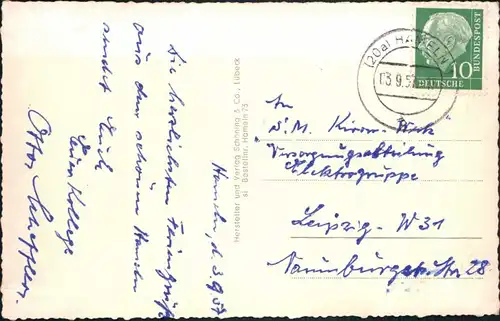 Hameln, d. 3.9.57
Die herzlichsten Feriengrüße
aus dem schönen Hameln
sendet Euch
Euer Kollege
Otto Scheffler
Hersteller und Verlag Schöning & Co., Lübeck
sl Bestellnr. Hameln 75
(20a) HAMELN
03.9.57
10
DEUTSCHE
BUNDESPOST
An
S.M. Kirow-Werk
Versorgungsabteilung
Elektrogruppe
Leipzig-W31
Naumburgerstr. 28